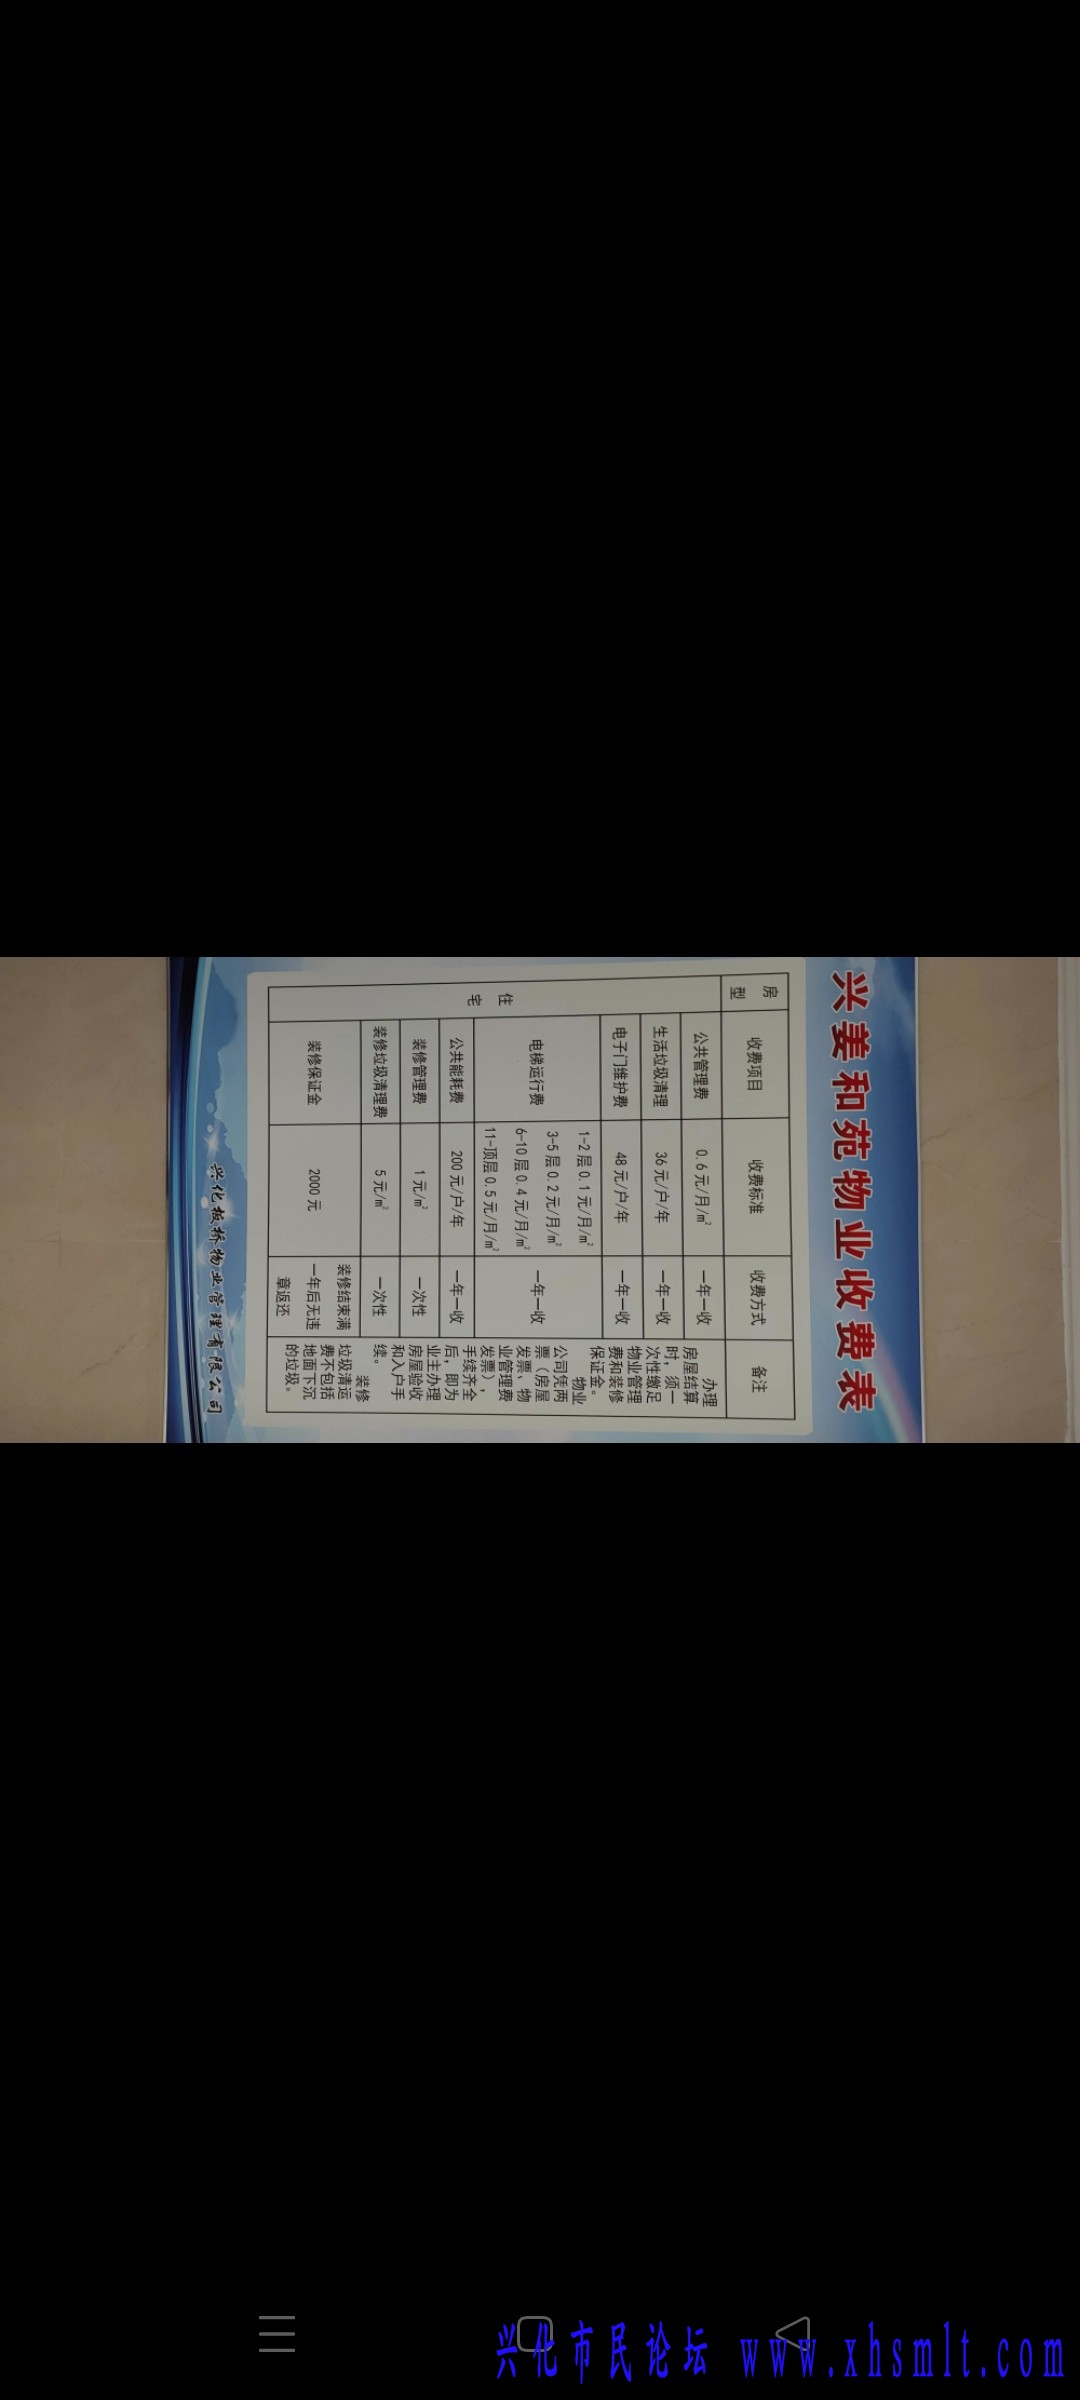 兴姜和苑物业收费表
房型 收费项目 收费标准 收费方式 备注
住宅
公共管理费 0.6元/月/m² 一年一收
生活垃圾清理 36元/户/年 一年一收
电子门维护费 48元/户/年 一年一收
电梯运行费
1-2层0.1元/月/m²
3-5层0.2元/月/m²
6-10层0.4元/月/m²
11-顶层0.5元/月/m²
一年一收
公共能耗费 200元/户/年 一年一收
装修管理费 1元/m² 一次性
装修垃圾清理费 5元/m² 一次性
装修保证金 2000元
装修结束满
一年后无违
章返还
办理
房屋结算
时，须一
次性缴足
物业管理
费和装修
保证金。
物业
公司凭两
票（房屋
发票、物
业管理费
发票），
手续齐全
后，即为
业主办理
房屋验收
和入户手
续。
装修
垃圾清运
费不包括
地面下沉
的垃圾。
兴化板桥物业管理有限公司
兴化市民论坛 www.xhsmlt.com